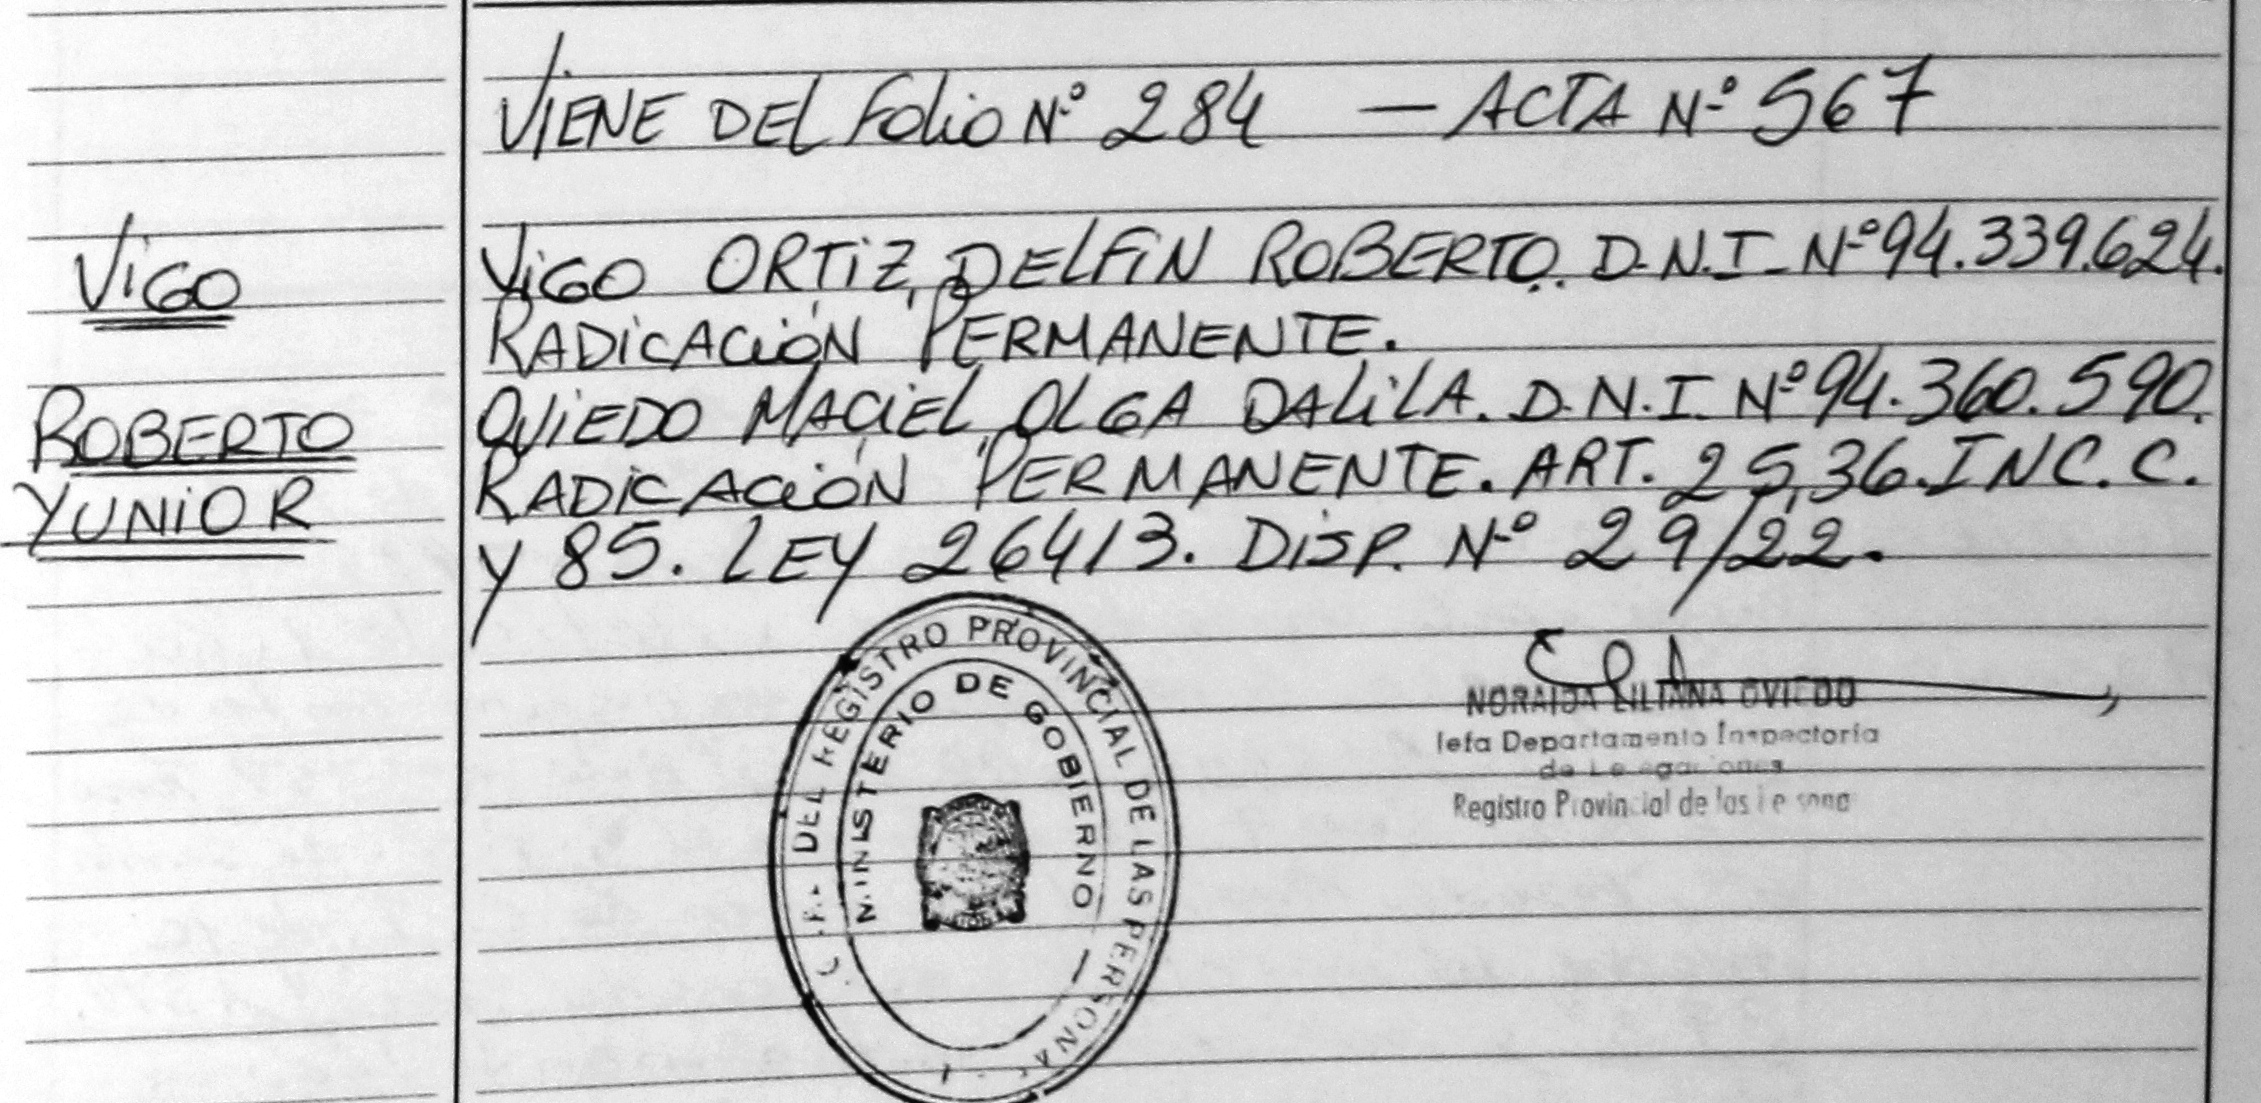 VIENE DEL Folio Nº 284 — ACTA Nº 567
ViGO
ROBERTO
YUNiOR
ViGO ORTiZ, DELFiN ROBERTO. D.N.I. Nº 94.339.624.
RADiCACiÓN PERMANENTE.
OViEDO MACiEL, OLGA DALiLA. D.N.I. Nº 94.360.590.
RADiCACiÓN PERMANENTE. ART. 25,36. INC. C.
Y 85. LEY 26413. DiSP. Nº 29/22.
DEL REGISTRO PROVINCIAL DE LAS PERSONAS
MINISTERIO DE GOBIERNO
NORAIDA LILIANA OVIEDO
Jefa Departamento Inspectoria
de Delegaciones
Registro Provincial de las Personas